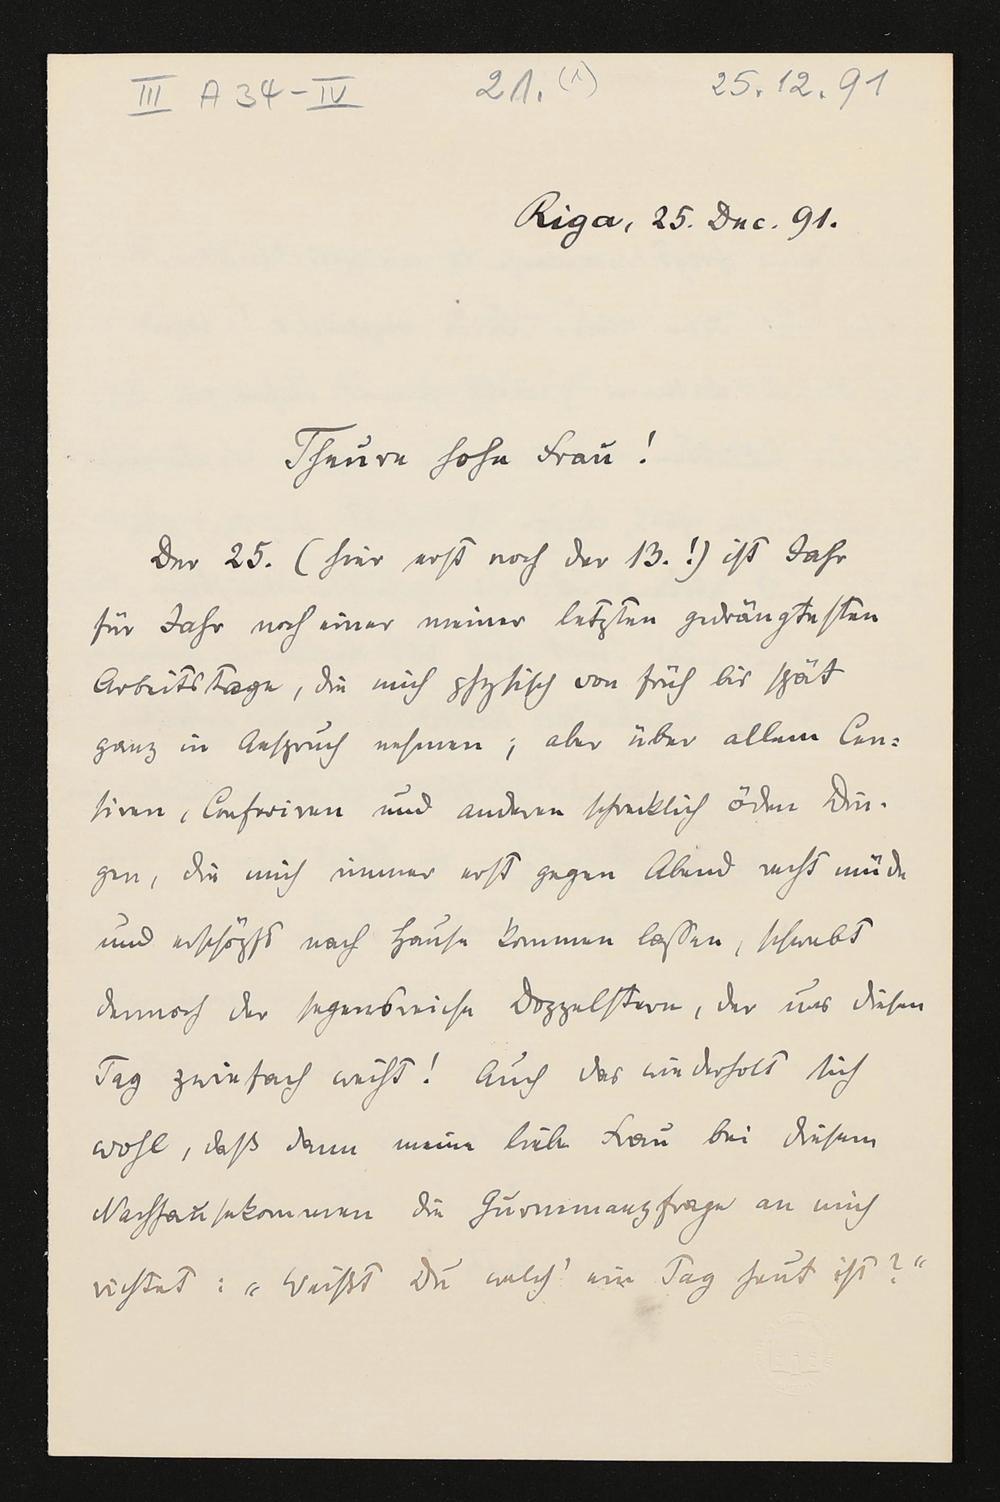 III A 34-IV 21. (1) 25.12.91
Riga, 25. Dec. 91.
Theure hohe Frau!
Der 25. (hier erst noch der 13.!) ist Jahr
für Jahr noch einer meiner letzten gedrängtesten
Arbeitstage, die mich physisch von früh bis spät
ganz in Anspruch nehmen; aber über allem Cen=
siren, Conferiren und anderen schrecklich öden Din-
gen, die mich immer erst gegen Abend recht müde
und erschöpft nach Hause kommen lassen, schwebt
dennoch der segensreiche Doppelstern, der uns diesen
Tag zwiefach weiht! Auch das wiederholt sich
wohl, daß dann meine liebe Frau bei diesem
Nachhausekommen die Gurnemanzfrage an mich
richtet: „Weißt Du welch' ein Tag heut ist?“